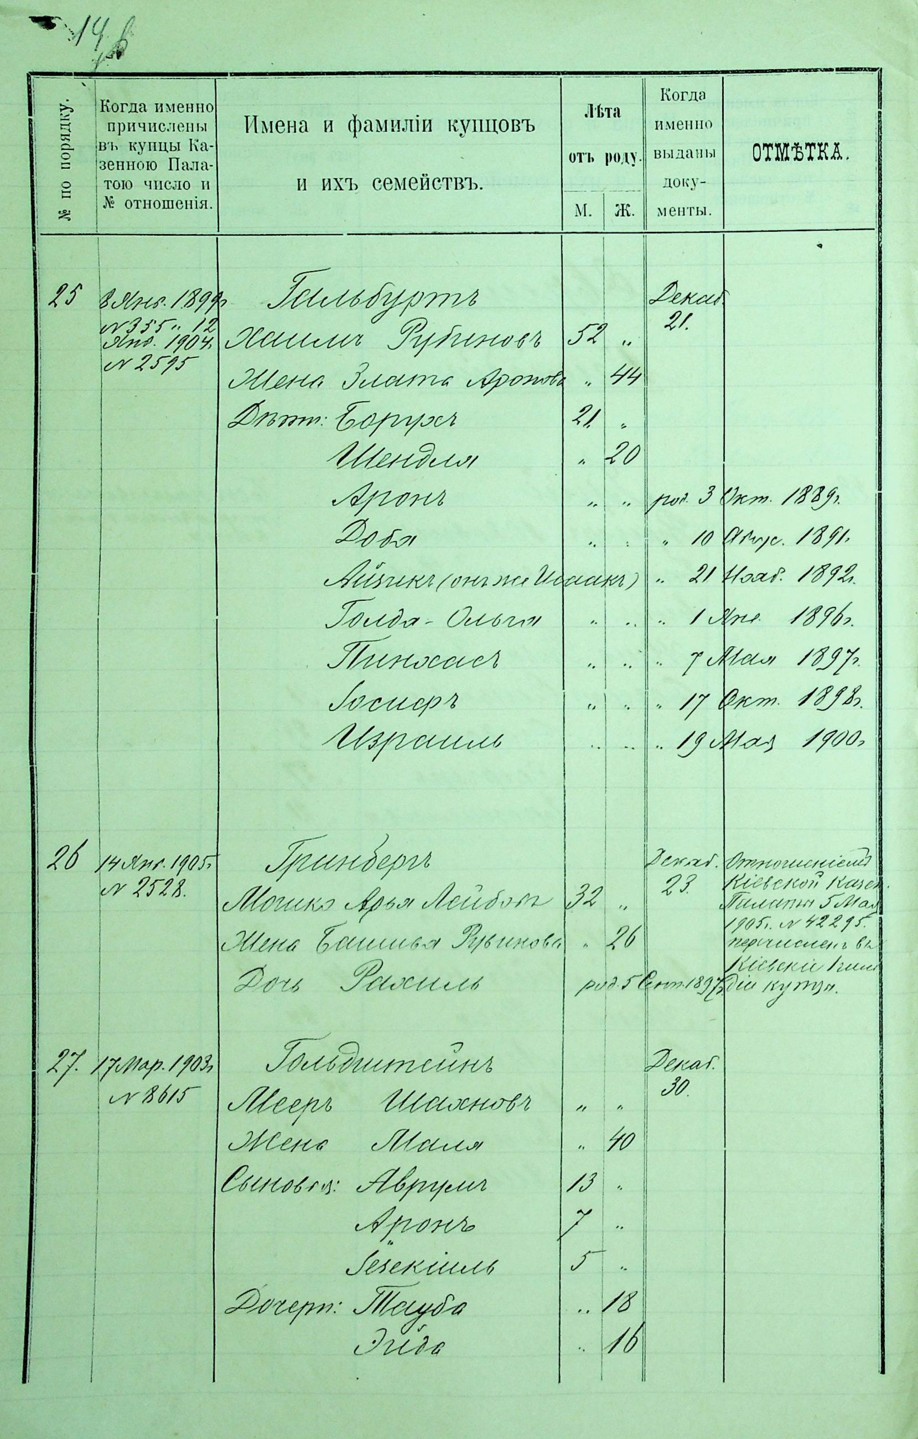 14
№ по порядку.
Когда именно причислены въ купцы Казенною Палатою число и № отношенія.
Имена и фамиліи купцовъ и ихъ семействъ.
Лѣта отъ роду.
М.
Ж.
Когда именно выданы документы.
ОТМѢТКА.
25 8 Янв. 1899г. Гальбуртъ Декаб.
№ 355 „ 12 21.
Янв. 1904г. Хаимъ Рубиновъ 52 „
№ 2595
Жена Злата Аронова „ 44
Дѣти: Борухъ 21 „
Шендля „ 20
Аронъ „ „ род. 3 Окт. 1889г.
Доба „ „ „ 10 Авгус. 1891г.
Айзикъ (онъ же Исаакъ) „ 21 Нояб. 1892г.
Голда-Ольга „ „ „ 1 Янв. 1896г.
Пинхасъ „ „ „ 7 Мая 1897г.
Іосифъ „ „ „ 17 Окт. 1898г.
Израиль „ „ „ 19 Мая 1900г.
26 14 Янв. 1905г. Гринбергъ Декаб. 23.
№ 2528.
Мошко Арья Лейбовъ 32 „
Жена Башева Рувинова „ 26
Дочь Рахиль род. 5 Сент. 1897г.
Отношеніемъ
Кіевской Казен.
Палаты 5 Мая
1905г. № 42295.
перечисленъ въ
Кіевскіе
купцы.
27. 17 Мар. 1903г. Гольдштейнъ Декаб.
№ 8615 30.
Мееръ Шахновъ „ „
Жена Маля „ 40
Сыновья: Аврумъ 13 „
Аронъ 7 „
Іезекіиль 5 „
Дочери: Тауба „ 18
„ 16